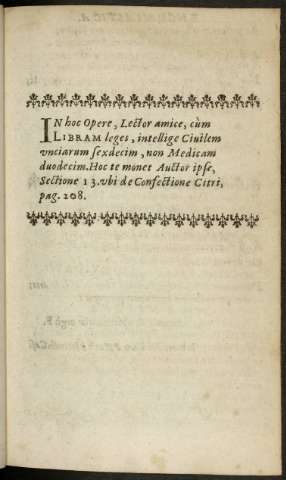 IN hoc Opere, Lector amice, cùm
LIBRAM leges, intellige Ciuilem
vnciarum sexdecim, non Medicam
duodecim. Hoc te monet Auctor ipse,
Sectione 13. vbi de Confectione Citri,
pag. 208.